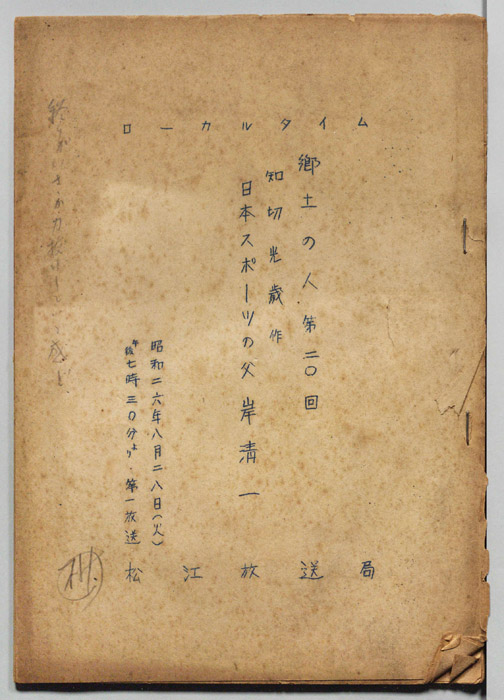 ローカルタイム
郷土の人 第二〇回
知切光歳 作
日本スポーツの父 岸清一
昭和二六年八月二八日(火)
午後七時三〇分より・第一放送
松江放送局